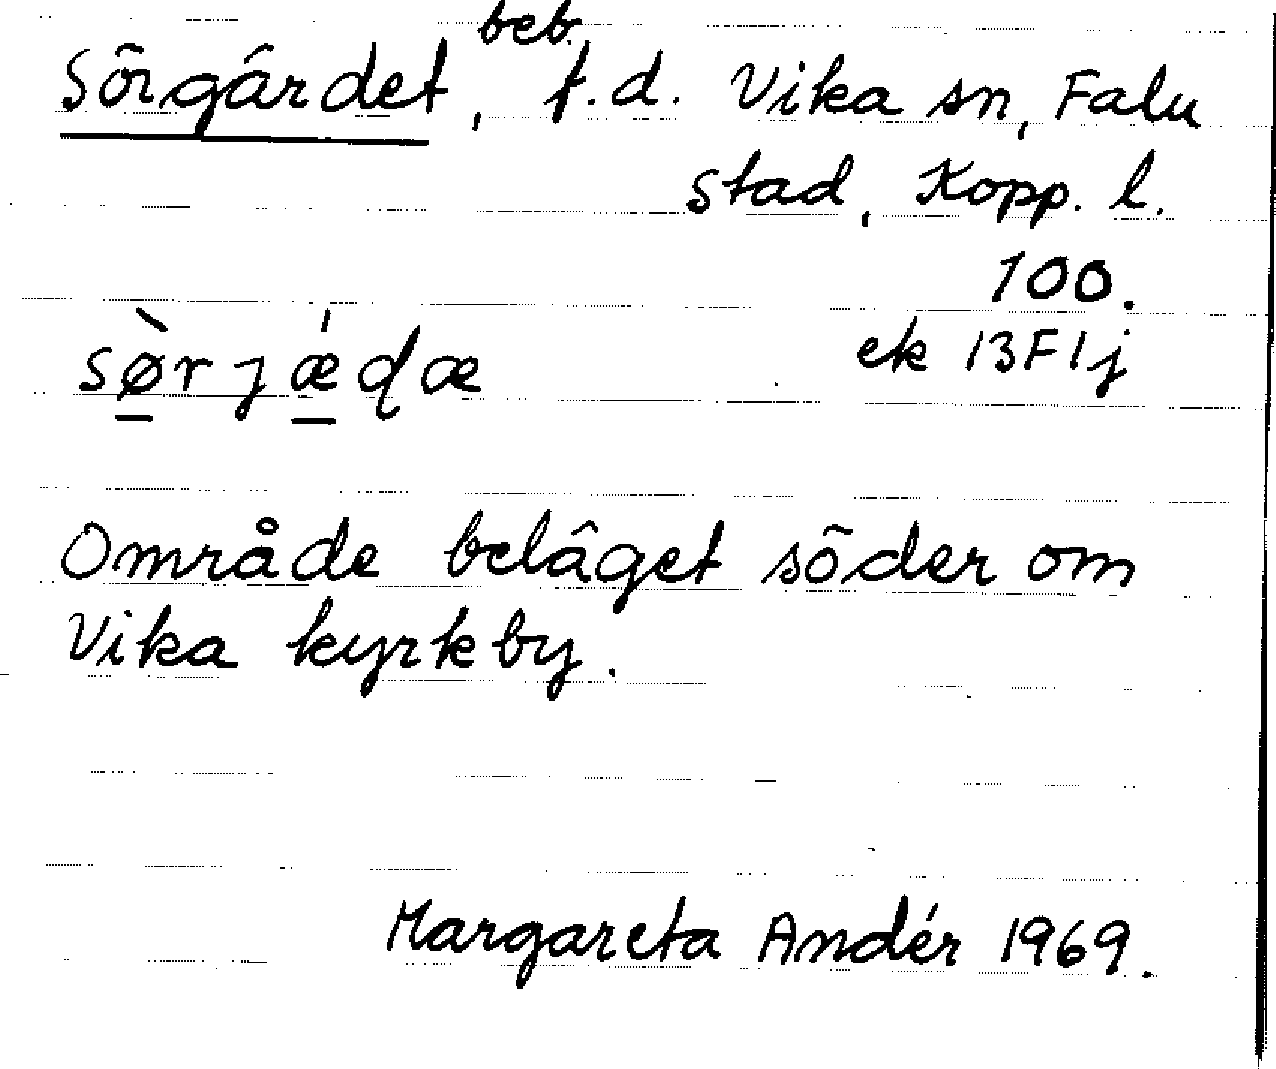 Sörgärdet, beb. f.d. Vika sn, Falu
stad, Kopp. l.
100.
sø̀rjǽɖæ ek 13F1j
Område beläget söder om
Vika kyrkby.
Margareta Andér 1969.